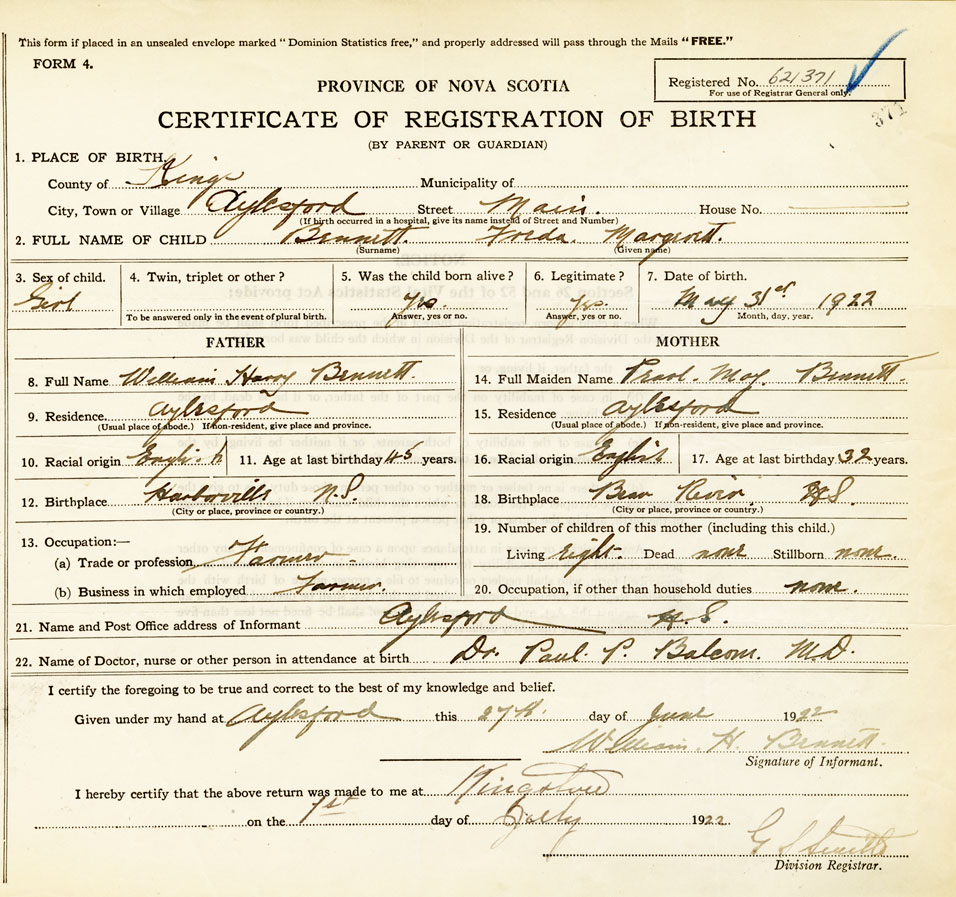 This form if placed in an unsealed envelope marked "Dominion Statistics free," and properly addressed will pass through the Mails "FREE."
FORM 4.
Registered No. 621371
For use of Registrar General only.
371
PROVINCE OF NOVA SCOTIA
CERTIFICATE OF REGISTRATION OF BIRTH
(BY PARENT OR GUARDIAN)
1. PLACE OF BIRTH.
County of Kings Municipality of
City, Town or Village Aylesford Street Main. House No.
(If birth occurred in a hospital, give its name instead of Street and Number)
2. FULL NAME OF CHILD Bennett. Freda. Margrett.
(Surname) (Given name)
3. Sex of child. 4. Twin, triplet or other? 5. Was the child born alive? 6. Legitimate? 7. Date of birth.
Girl Yes. Yes. May 31st 1922
To be answered only in the event of plural birth. Answer, yes or no. Answer, yes or no. Month, day, year.
FATHER MOTHER
8. Full Name William Harry Bennett. 14. Full Maiden Name Pearl. May. Bennett.
9. Residence. Aylesford 15. Residence Aylesford
(Usual place of abode.) If non-resident, give place and province. (Usual place of abode.) If non-resident, give place and province.
10. Racial origin English 11. Age at last birthday 45 years. 16. Racial origin English 17. Age at last birthday 32 years.
12. Birthplace Harborville N.S. 18. Birthplace Bear River N.S.
(City or place, province or country.) (City or place, province or country.)
19. Number of children of this mother (including this child.)
13. Occupation:—
(a) Trade or profession Farmer. Living Eight Dead none Stillborn none
(b) Business in which employed Farmer. 20. Occupation, if other than household duties none.
21. Name and Post Office address of Informant Aylesford N.S.
22. Name of Doctor, nurse or other person in attendance at birth Dr. Paul. P. Balcom. M.D.
I certify the foregoing to be true and correct to the best of my knowledge and belief.
Given under my hand at Aylesford this 27th. day of June 1922
William. H. Bennett.
Signature of Informant.
I hereby certify that the above return was made to me at Kingston
on the 1st day of July 1922
Division Registrar.